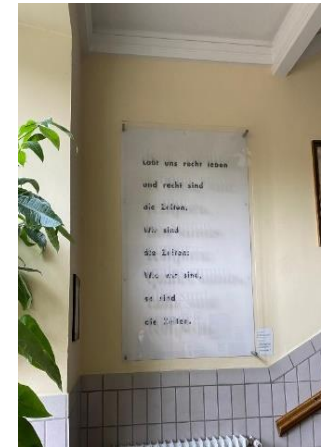 Laßt uns recht leben
und recht sind
die Zeiten.
Wir sind
die Zeiten:
Wie wir sind,
so sind
die Zeiten.